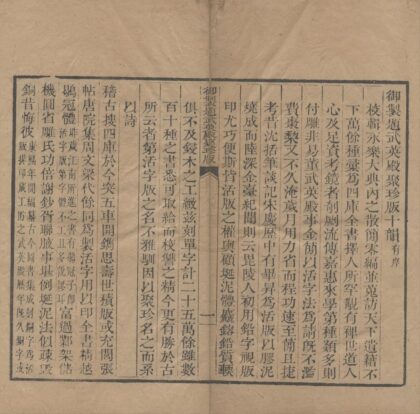 御製題武英殿聚珍版十韻有序
校輯永樂大典內之散簡零編並蒐訪天下遺籍不
下萬餘種彙爲四庫全書擇人所罕覯有裨世道人
心及足資考鏡者剞劂流傳嘉惠來學第種類多則
付雕非易董武英殿事金簡以活字法爲請既不濫
費棗棃又不久淹歲月用力省而程功速至簡且捷
考昔沈括筆談記宋慶歷中有畢昇爲活版以膠泥
燒成而陸深金臺紀聞則云毘陵人初用鉛字視版
印尤巧便斯皆活版之權輿顧埏泥體麤鎔鉛質輭
御製題武英殿聚珍版
一
俱不及鋟木之工緻茲刻單字計二十五萬餘雖數
百十種之書悉可取給而校讐之精今更有勝於古
所云者第活字版之名不雅馴因以聚珍名之而系
以詩
稽古搜四庫於今突五車開鐫思壽世積版或充閭張
帖唐院集周文梁代餘同爲製活字用以印全書精越
鶡冠體
富過鄴架儲
機圓省雕氏功倍謝鈔胥聯腋事堪例埏泥法似疎毀
銅昔悔彼